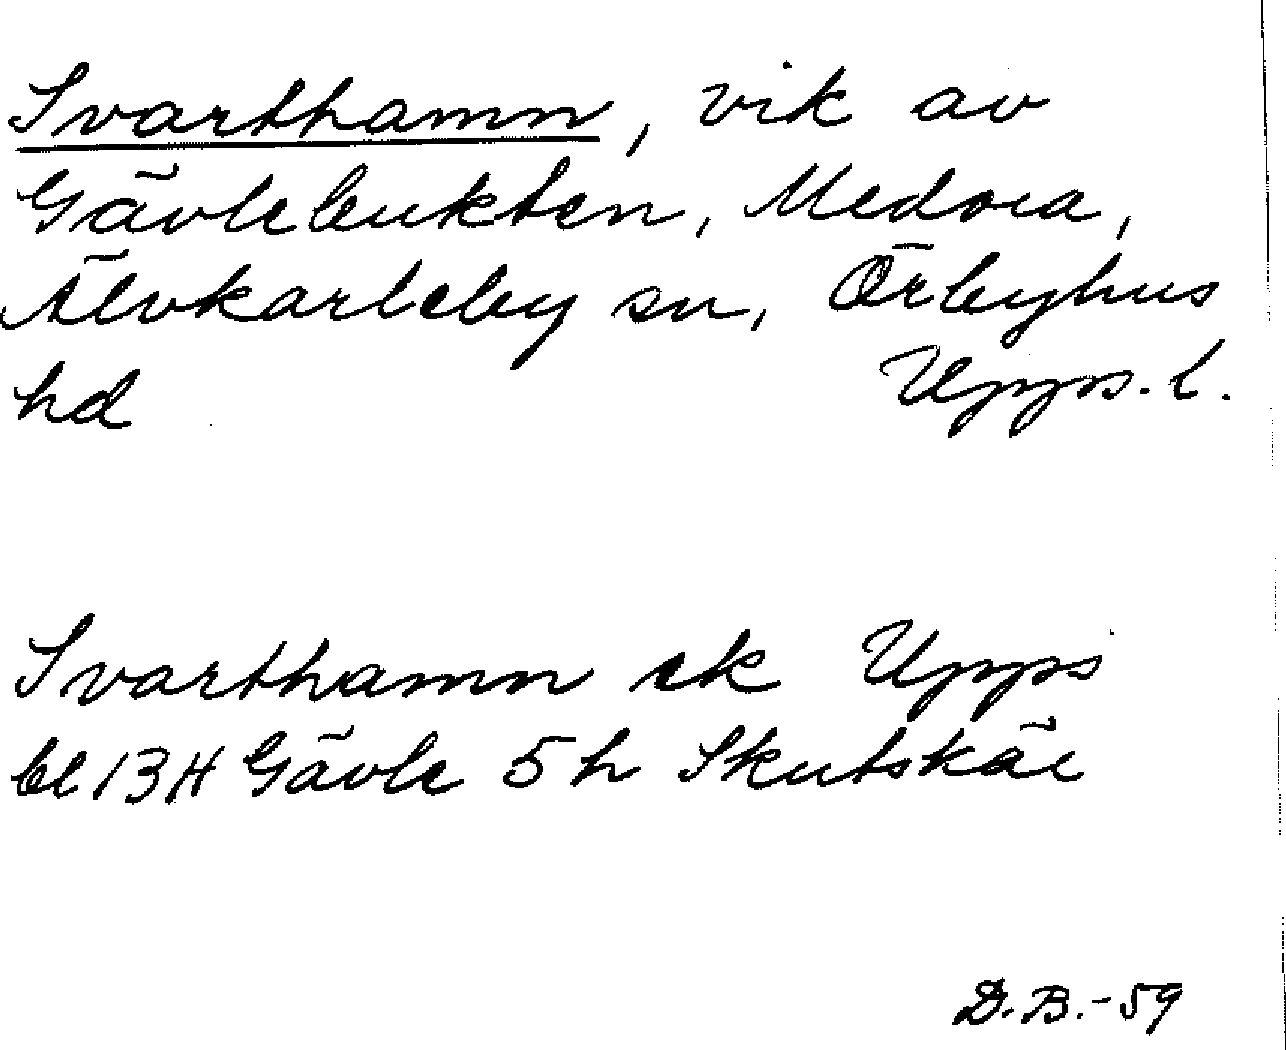 Svarthamn, vik av
Gävlebukten, Medora,
Älvkarleby sn, Örbyhus
hd Upps. l.
Svarthamn ek Upps
bl 13H Gävle 5 h Skutskär
D.B.-59